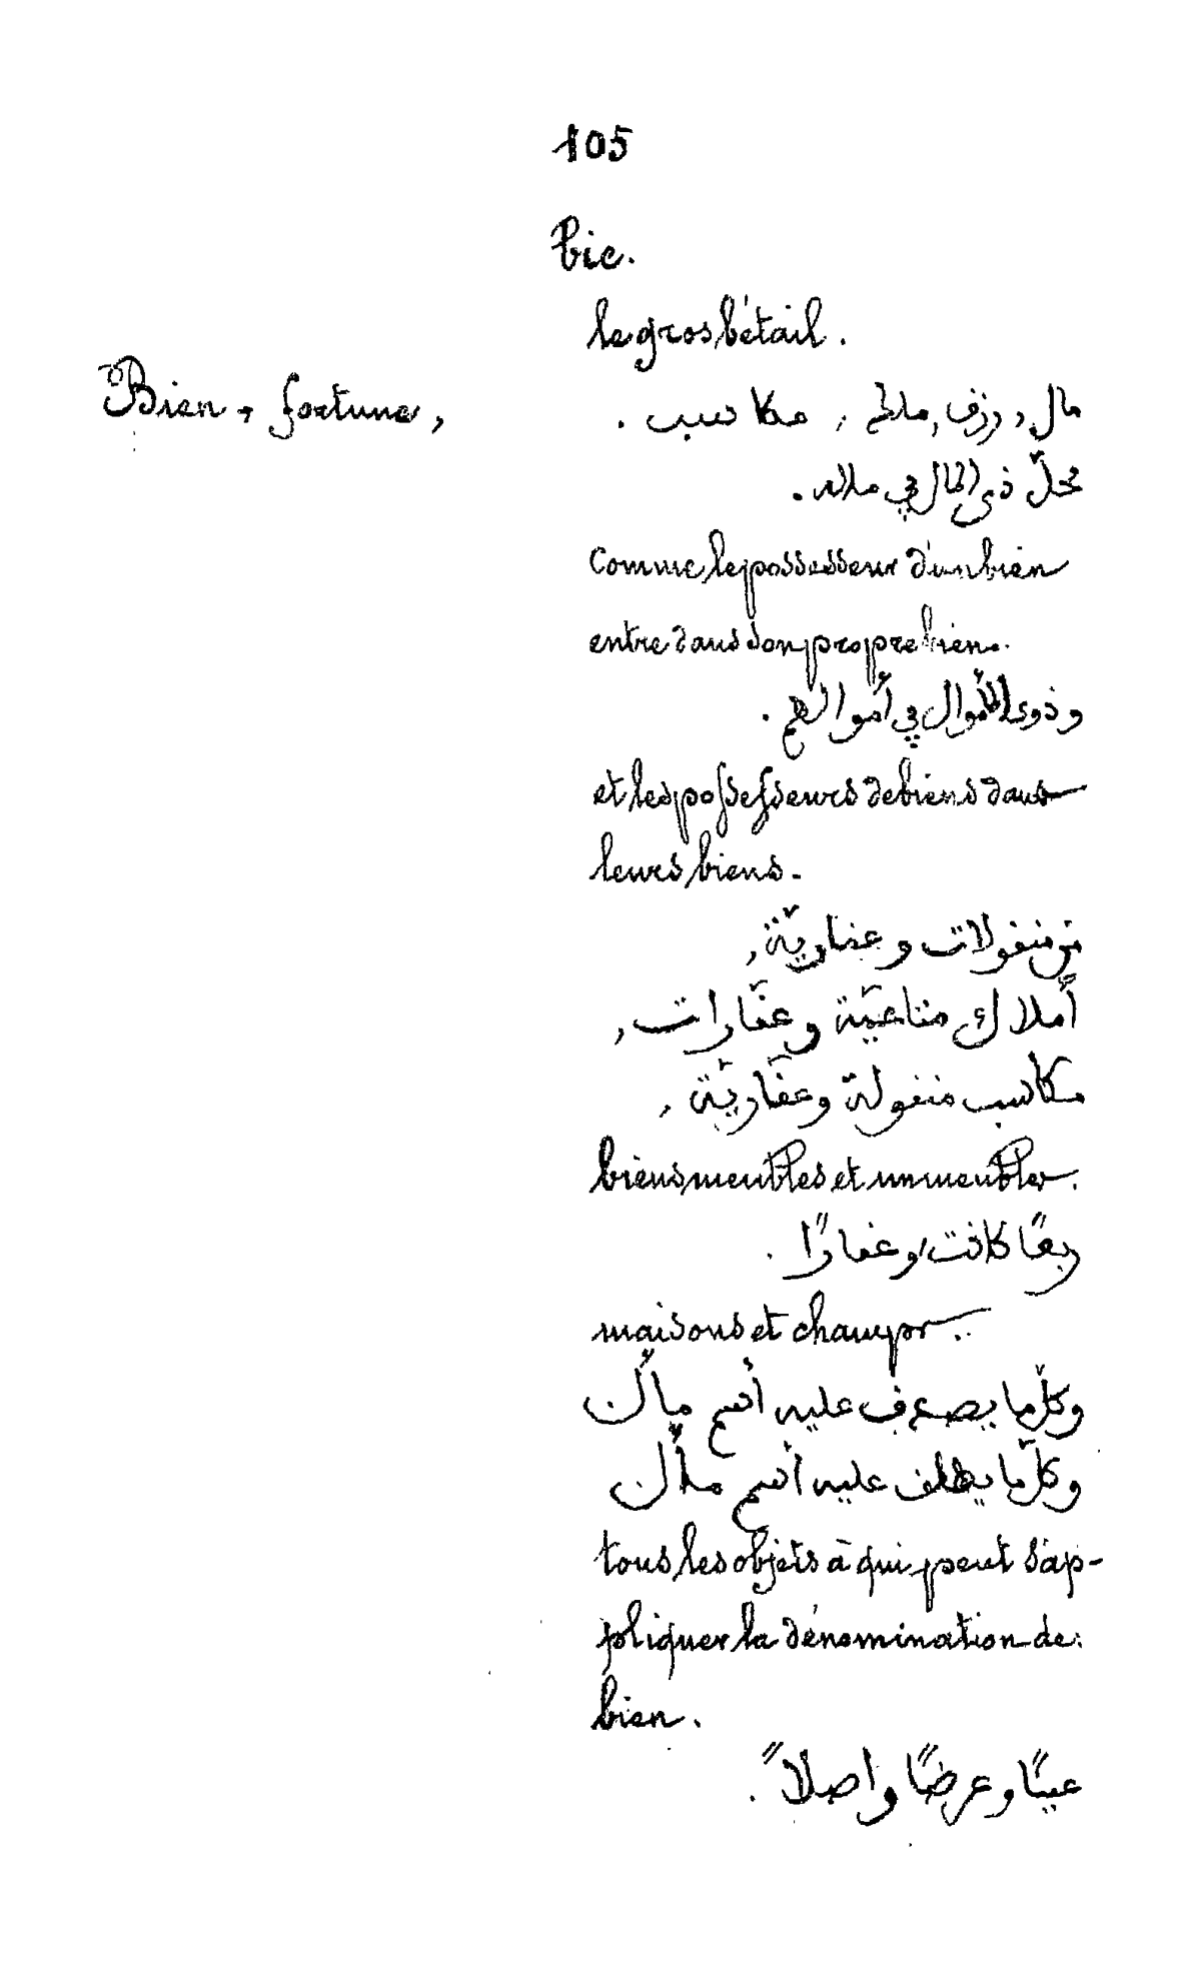 105
bie.
le gros bétail.
Bien, fortune, مال, رزق, مكاسب.
محلّ ذى المال في ماله.
comme le possesseur d'un bien
entre dans son propre bien.
وذوى الأموال في أموالهم.
et les possesseurs de biens dans
leurs biens.
من منقولات وعقاريّة,
أملاك متاعيّة وعقّارات,
مكاسب منقولة وعقّاريّة,
biens meubles et immeubles.
ربعًا كانت او عقارًا.
maisons et champs.
وكلّ ما يصدق عليه أسم مال
وكلّ ما يطلق عليه أسم مال
tous les objets à qui peut s'ap-
pliquer la dénomination de:
bien.
عينًا وعرضًا واصلاً.